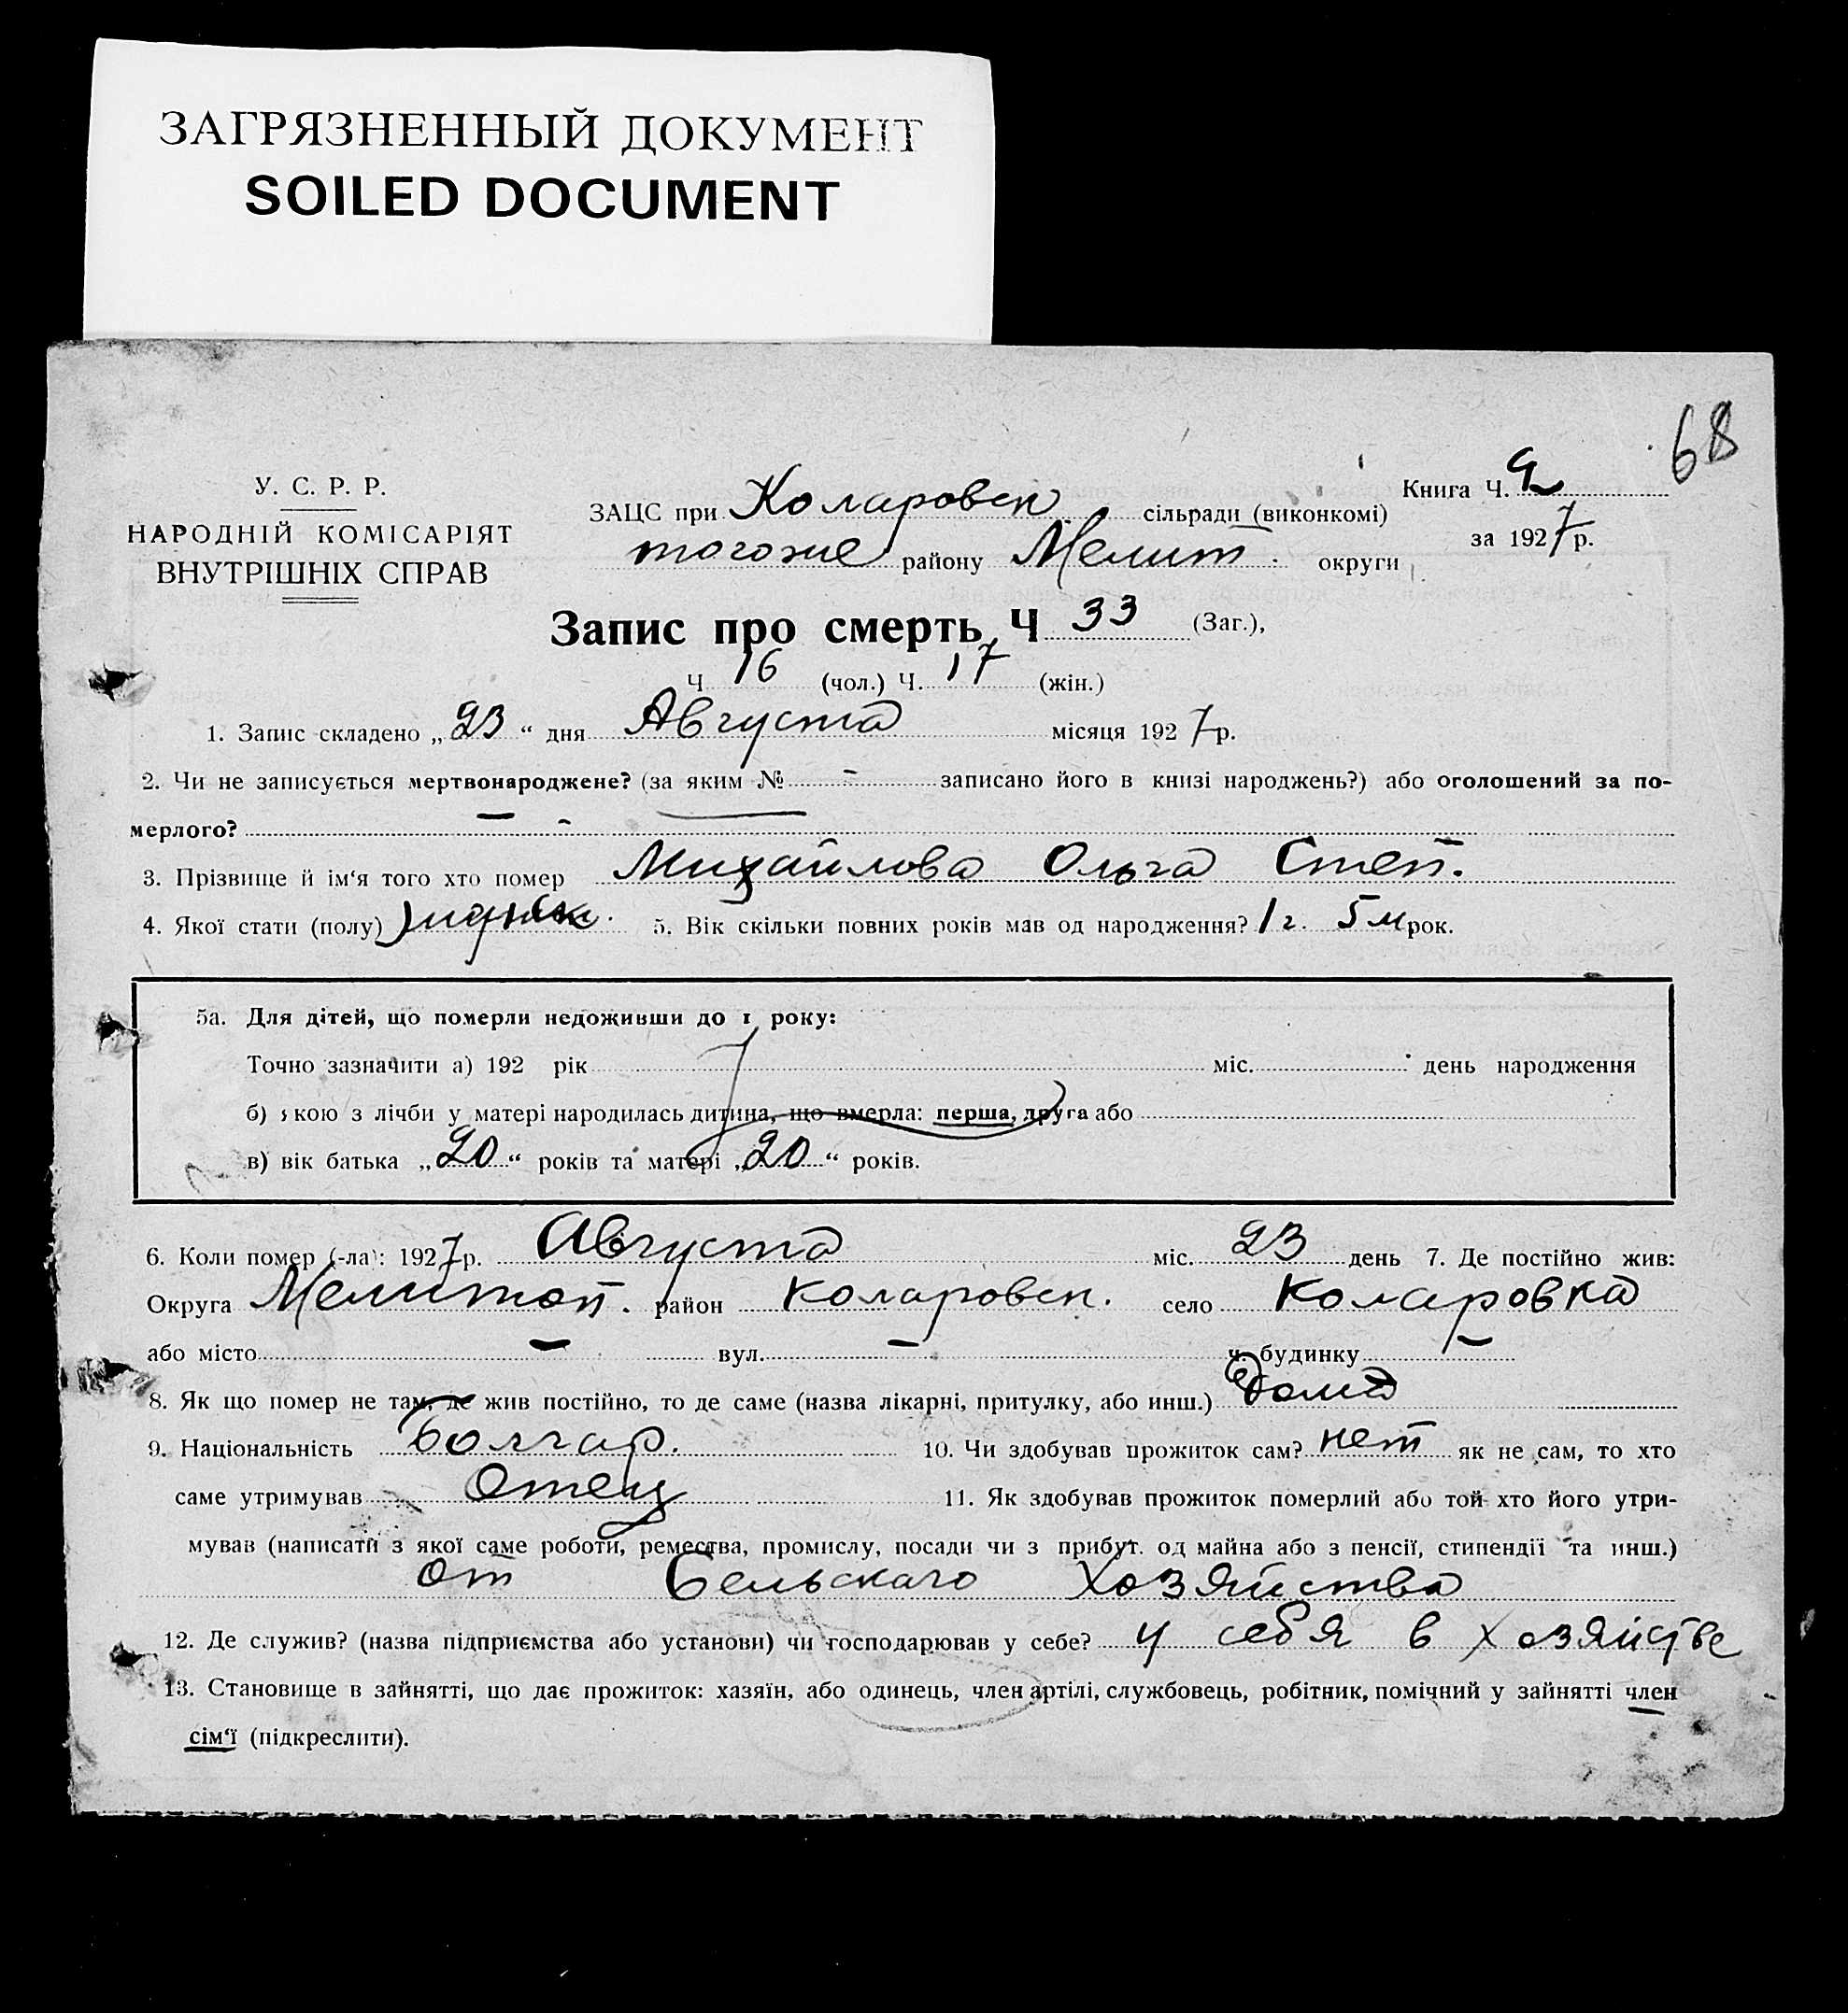 ЗАГРЯЗНЕННЫЙ ДОКУМЕНТ
SOILED DOCUMENT
68
У. С. Р. Р.
НАРОДНІЙ КОМІСАРІЯТ
ВНУТРІШНІХ СПРАВ
ЗАЦС при Коларовск сільради (виконкомі)
тогоже району Мелит. округи
Книга Ч. 2
за 1927р.
Запис про смерть, Ч 33 (Заг.),
Ч 16 (чол.) Ч. 17 (жін.)
1. Запис складено „23“ дня Августа місяця 1927р.
2. Чи не записується мертвонароджене? (за яким № - записано його в книзі народжень?) або оголошений за по-
мерлого? — -
3. Прізвище й ім'я того хто помер Михайлова Ольга Степ.
4. Якої стати (полу) 5. Вік скільки повних років мав од народження? 1 г. 5 м рок.
5а. Для дітей, що померли недоживши до 1 року:
Точно зазначити а) 192 рік міс. день народження
б) якою з лічби у матері народилась дитина, що вмерла: перша, друга або
в) вік батька „20“ років та матері „20“ років.
6. Коли помер (-ла): 1927р. Августа міс. 23 день 7. Де постійно жив:
Округа Мелитоп. район Коларовск. село Коларовка
або місто — вул. — ч. будинку —
8. Як що помер не там, де жив постійно, то де саме (назва лікарні, притулку, або инш.) дома
9. Національність болгар. 10. Чи здобував прожиток сам? нет як не сам, то хто
саме утримував Отец 11. Як здобував прожиток померлий або той хто його утри-
мував (написати з якої саме роботи, ремества, промислу, посади чи з прибут. од майна або з пенсії, стипендії та инш.)
От Сельскаго Хозяйства
12. Де служив? (назва підприємства або установи) чи господарював у себе? у себя в хозяйстве
13. Становище в зайнятті, що дає прожиток: хазяїн, або одинець, член артілі, службовець, робітник, помічний у зайнятті член
сім'ї (підкреслити).